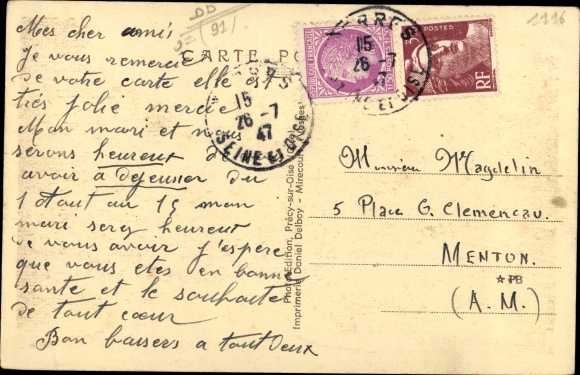 1116
DD
(91)
CARTE PO
Mes cher amis
Je vous remercie
de votre carte elle est
très jolie mercie
Mon mari et nous
serons heureux de
avoir a dejeuner du
1 Août au 15 mon
mari sera heureux
de vous avoir j'espere
que vous etes en bonne
sante et le souhaite
de tout cœur
Bon baisers a tout Deux
YERRES
15
26 -7
47
SEINE ET OISE
YERRES
15
26 -7
47
SEINE ET OISE
REPUBLIQUE FRANÇAISE
POSTES
RF
Photo-Edition, Précy-sur-Oise
Imprimerie Daniel Delboy - Mirecourt
Monsieur Magdelin
5 Place G. Clemenceau.
MENTON.
☆PB
(A.M.)